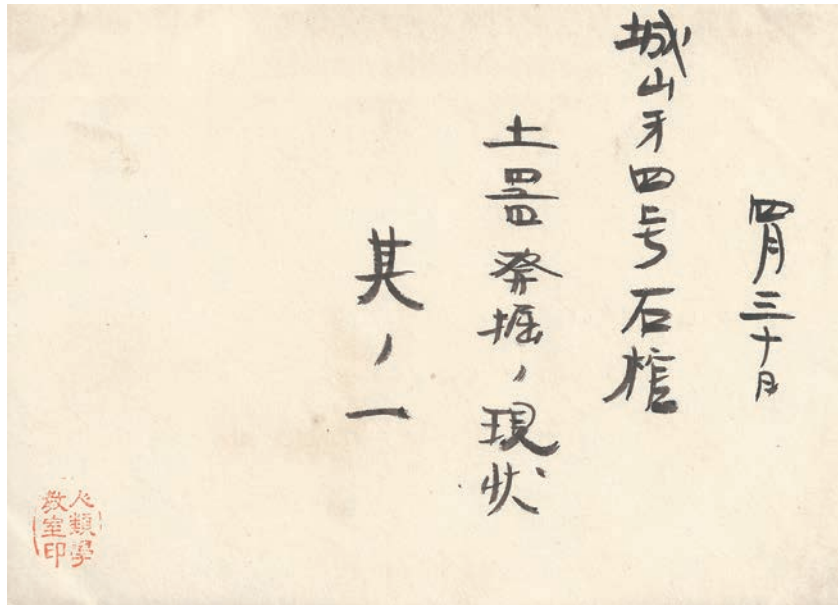 四月三十日
城山才四号石棺
土器発掘ノ現状
其ノ一
人類學
教室印